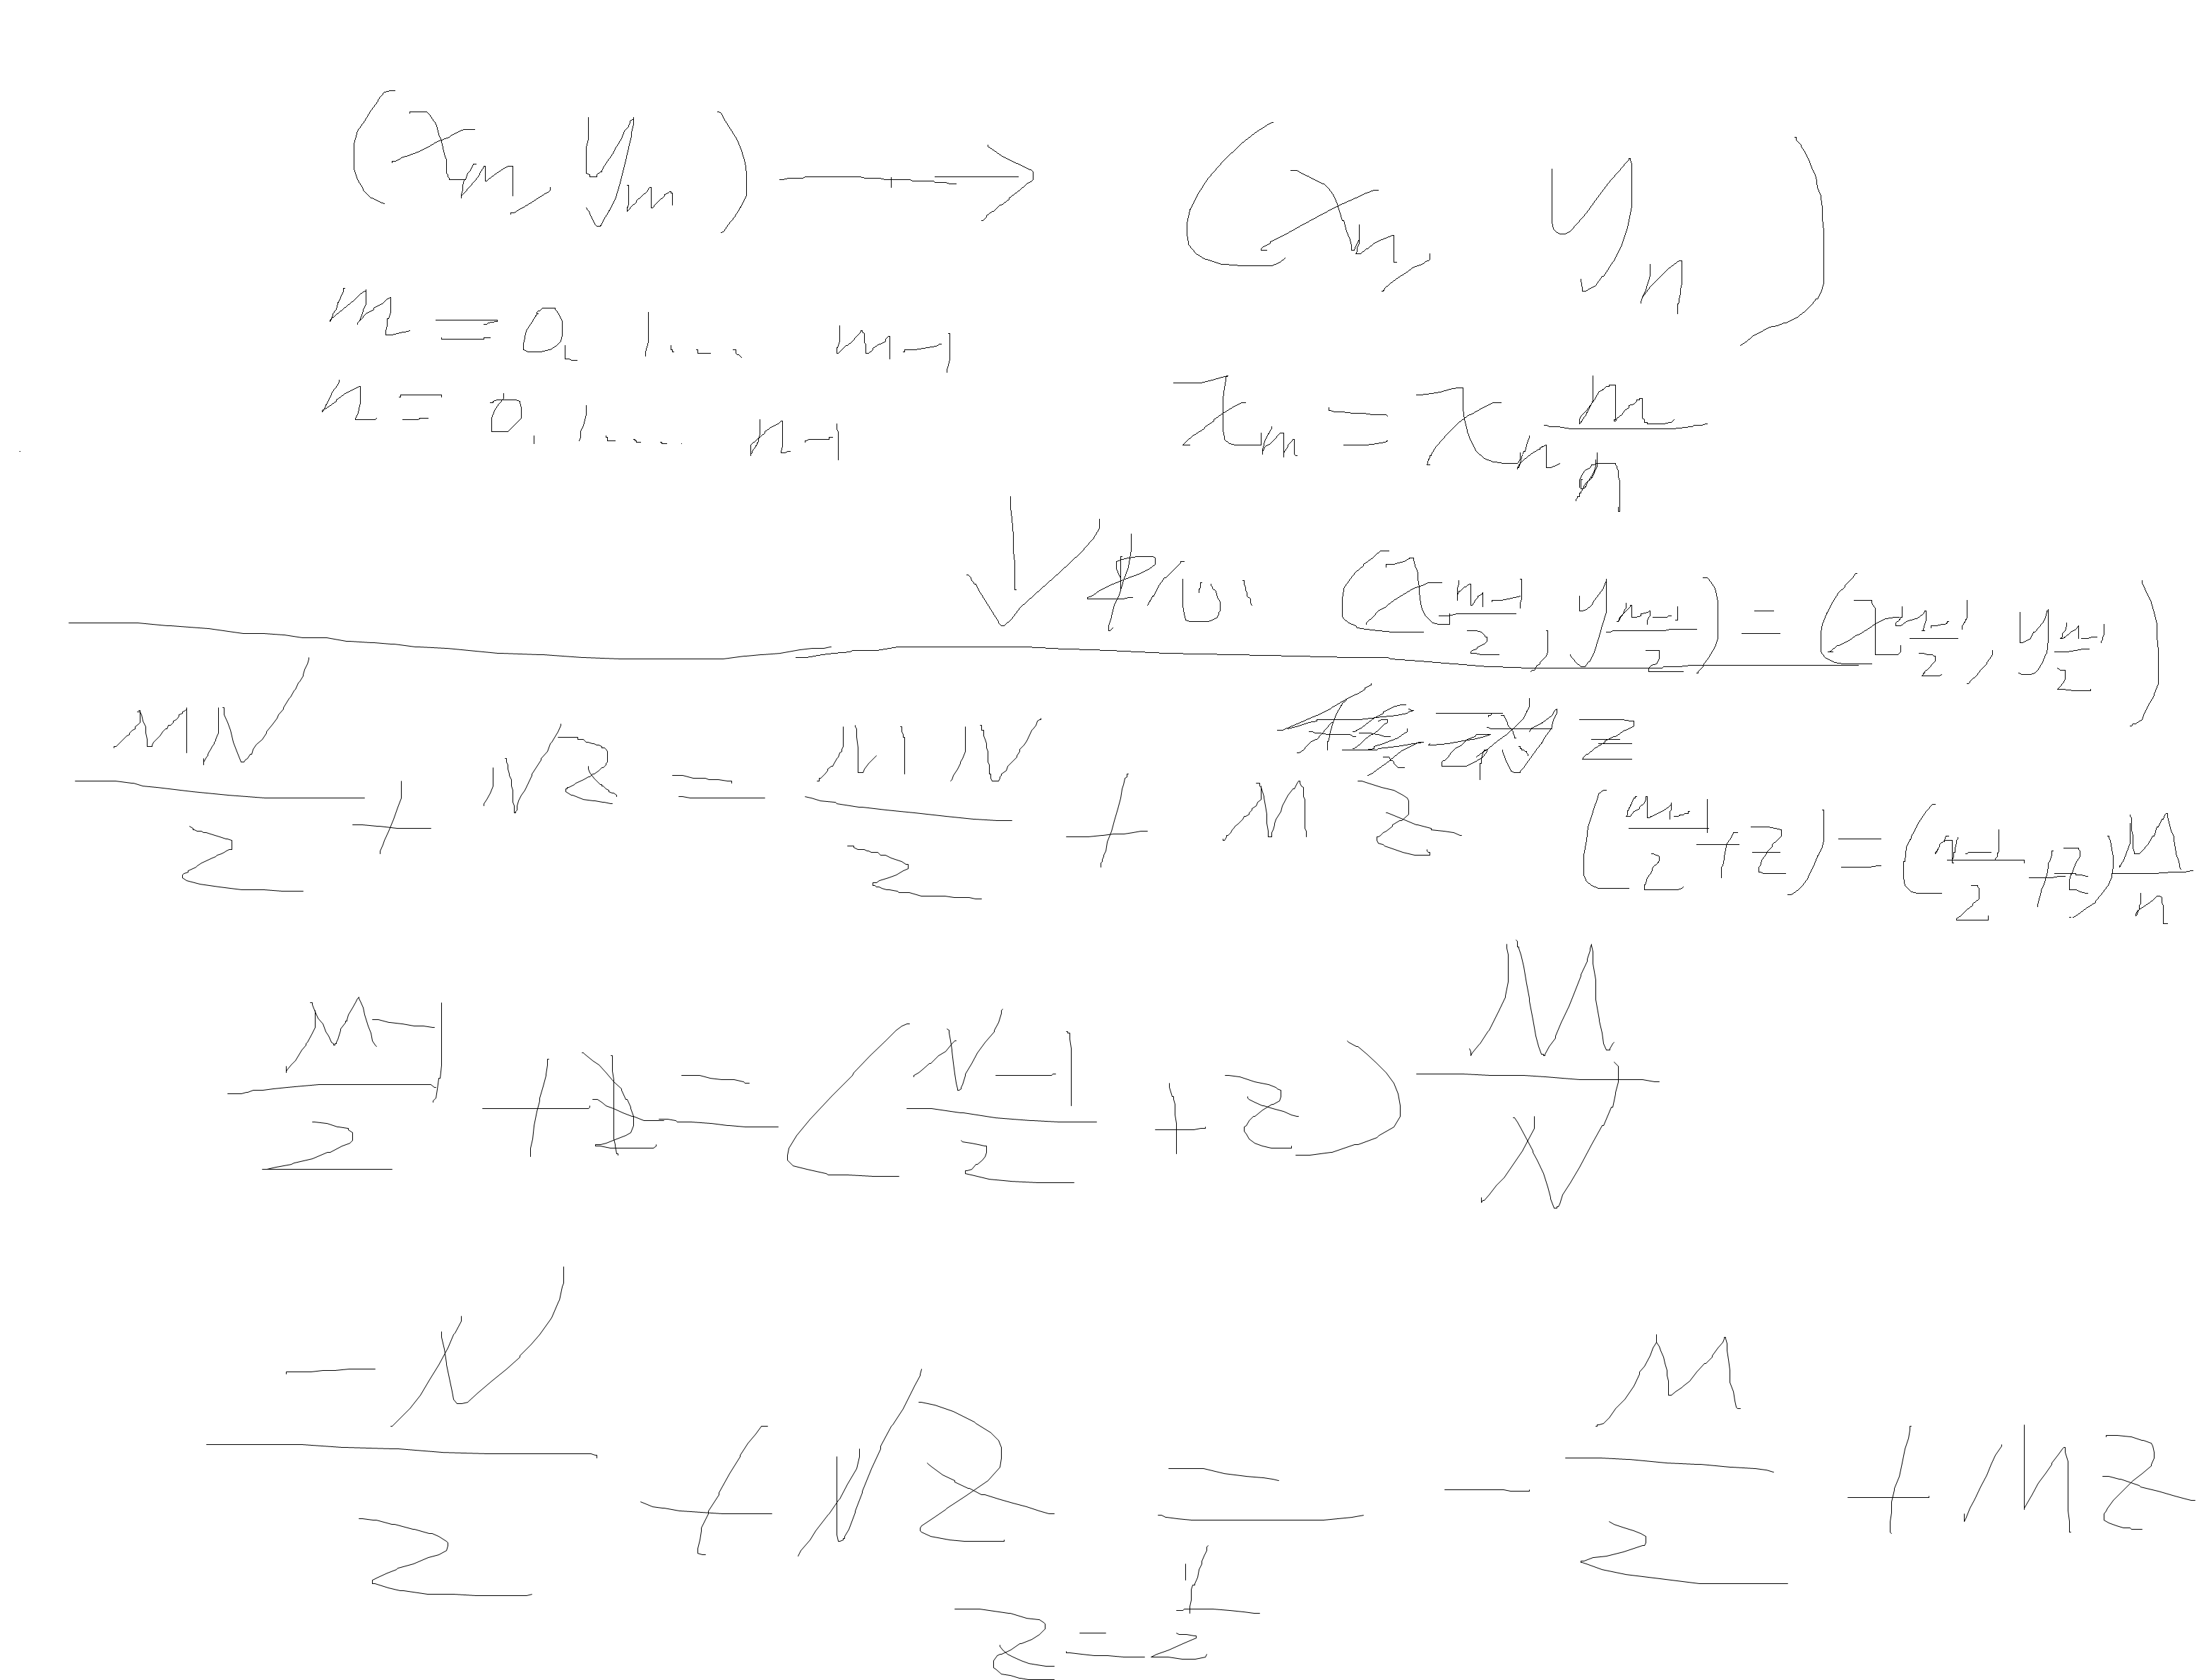 (x_m, y_m) → (x_n, y_n)
m = 0, 1 ... m-1
n = 0, 1 .... n-1
x_m = x_n m/n
(x_{(m-1)/2}, y_{(m-1)/2}) = (x_{(n-1)/2}, y_{(n-1)/2})
z
MN/2 + NZ = MN/2 + MZ
((m-1)/2 + z) = ((n-1)/2 + z) M/n
(M-1)/2 + z = ((N-1)/2 + z) M/N
-N/2 + NZ = -M/2 + MZ
z = 1/2